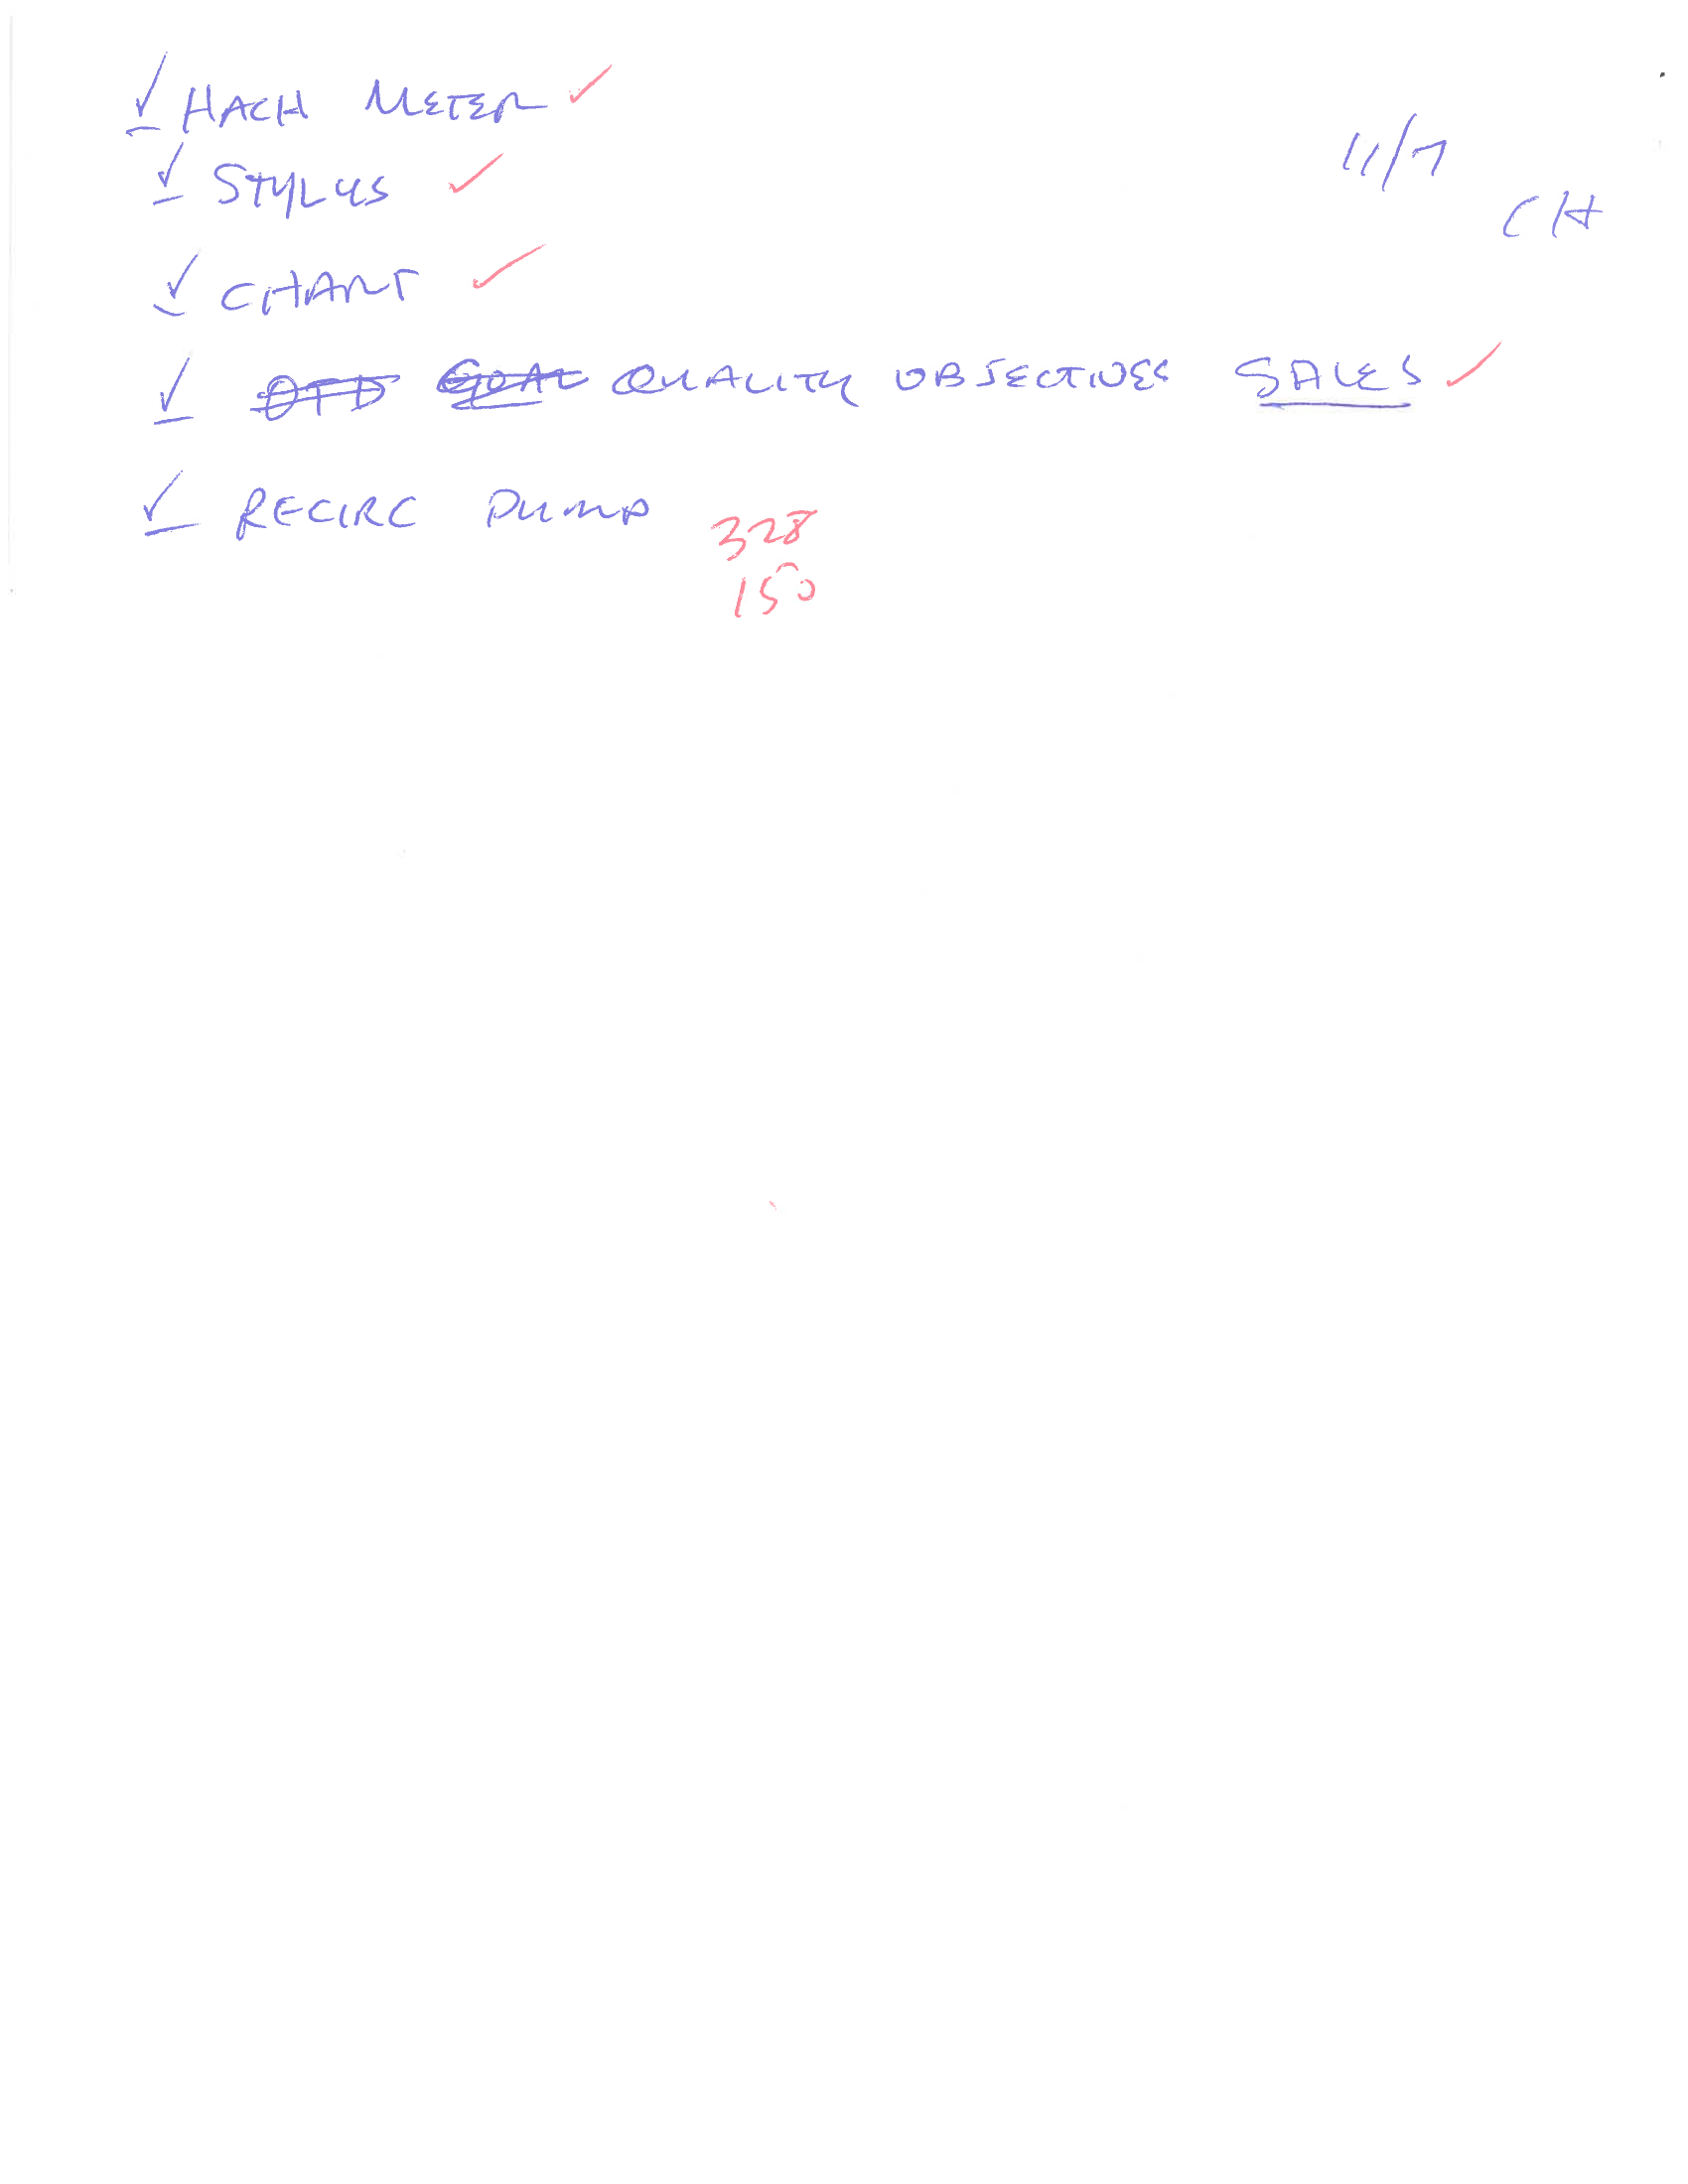 ✓ HACH METER ✓
11/7
✓ STYLUS ✓
CH
✓ CHART ✓
✓ OTD GOAL QUALITY OBJECTIVES SALES ✓
✓ RECIRC PUMP
328
150